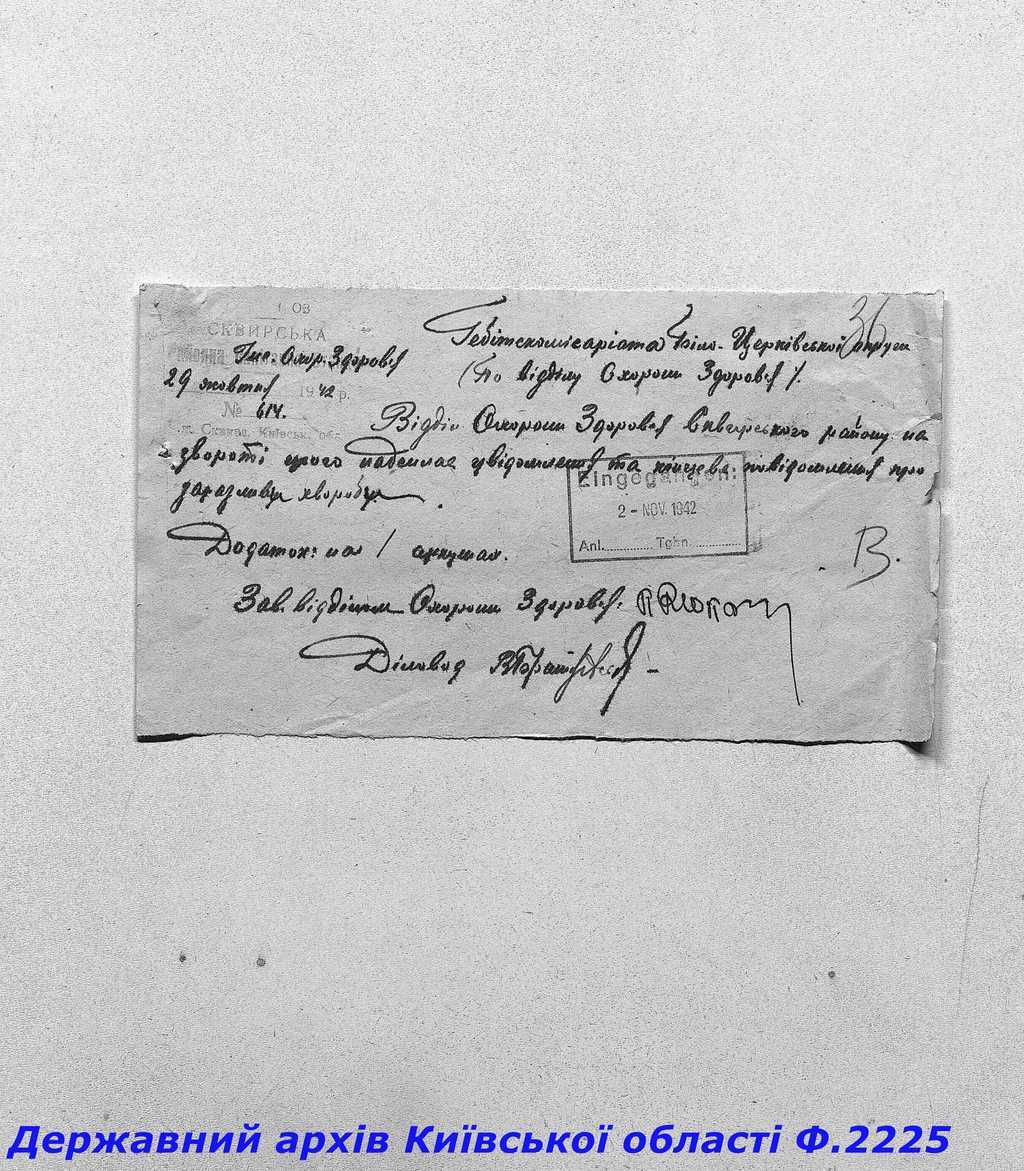 36
ОЗ
СКВИРСЬКА
Інс. Охор. Здоровя
29 жовтня 1942 р.
№ 614.
м. Сквира, Київськ. обл.
Гебітскомісаріата Біло-Церківської округи
(По відділу Охорони Здоровя).
Відділ Охорони Здоровя Сквирського району на
звороті цього надсилає увідомлення та кінцеве повідомлення про
заразливи хвороби
Eingegangen:
2 - NOV. 1942
Anl. Tgbn.
Додаток: на 1 аркушах.
В.
Зав. відділом Охорони Здоровя.
Діловод
Державний архів Київської області Ф.2225